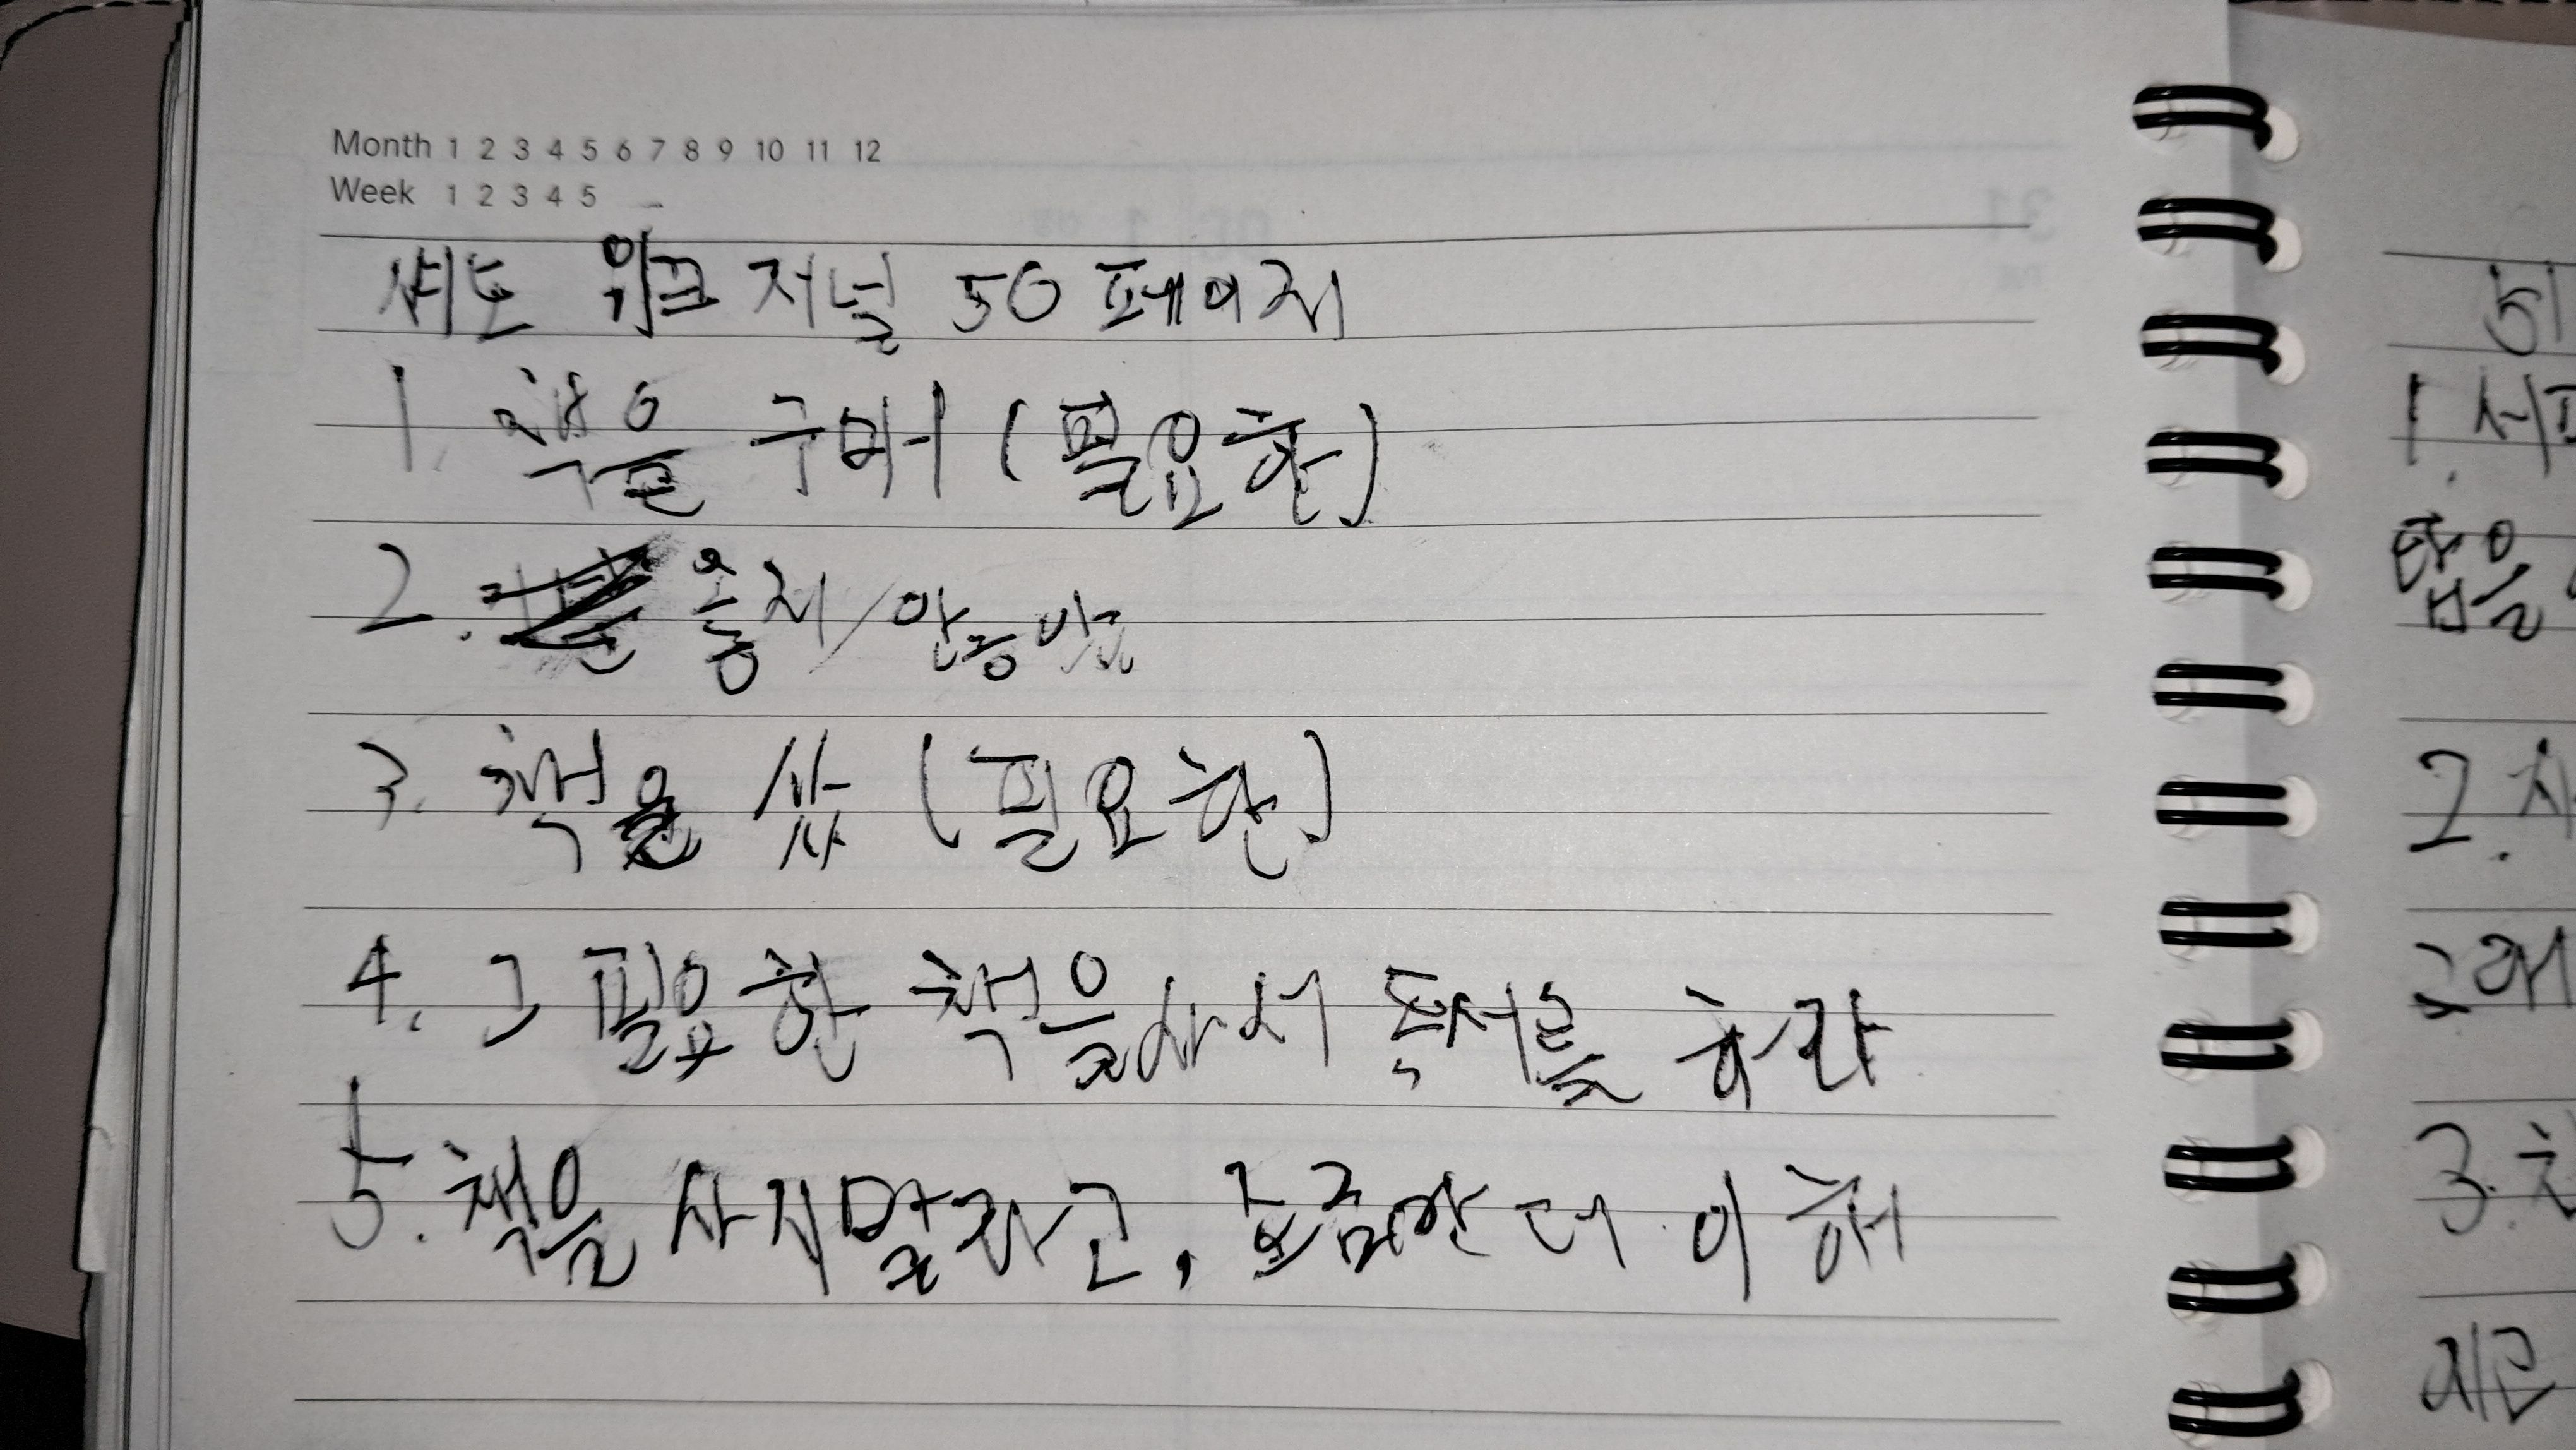 Month 1 2 3 4 5 6 7 8 9 10 11 12
Week 1 2 3 4 5
섀도 워크 저널 50 페이지
1. 책을 구매 (필요한)
2. 옹지/안중방
3. 책을 삿 (필요한)
4. 그 필요한 책을 사서 독서를 하라
5. 책을 사지말라곤, 조금만 더 이해
51
1. 서
답을
2. 차
3.